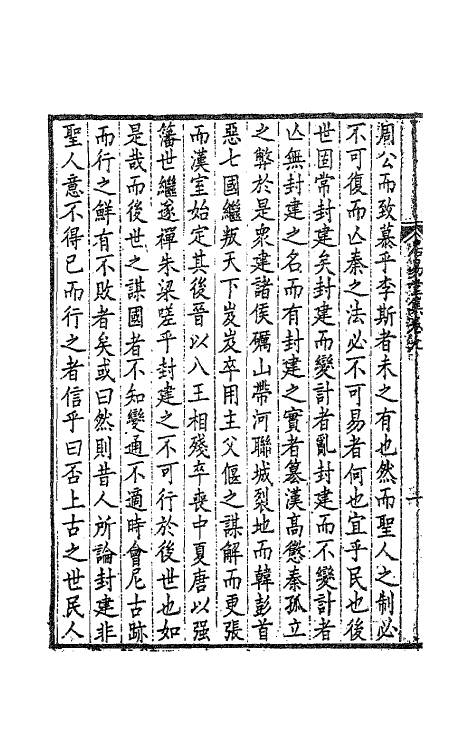 周公而致慕乎李斯者未之有也然而聖人之制必
不可復而亾秦之法必不可易者何也宜乎民也後
世固常封建矣封建而變計者亂封建而不變計者
亾無封建之名而有封建之實者簒漢高懲秦孤立
之弊於是衆建諸侯礪山帶河聯城裂地而韓彭首
惡七國繼叛天下岌岌卒用主父偃之謀解而更張
而漢室始定其後晉以八王相殘卒喪中夏唐以强
籓世繼遂禪朱梁嗟乎封建之不可行於後世也如
是哉而後世之謀國者不知變通不適時會尼古跡
而行之鮮有不敗者矣或曰然則昔人所論封建非
聖人意不得已而行之者信乎曰否上古之世民人